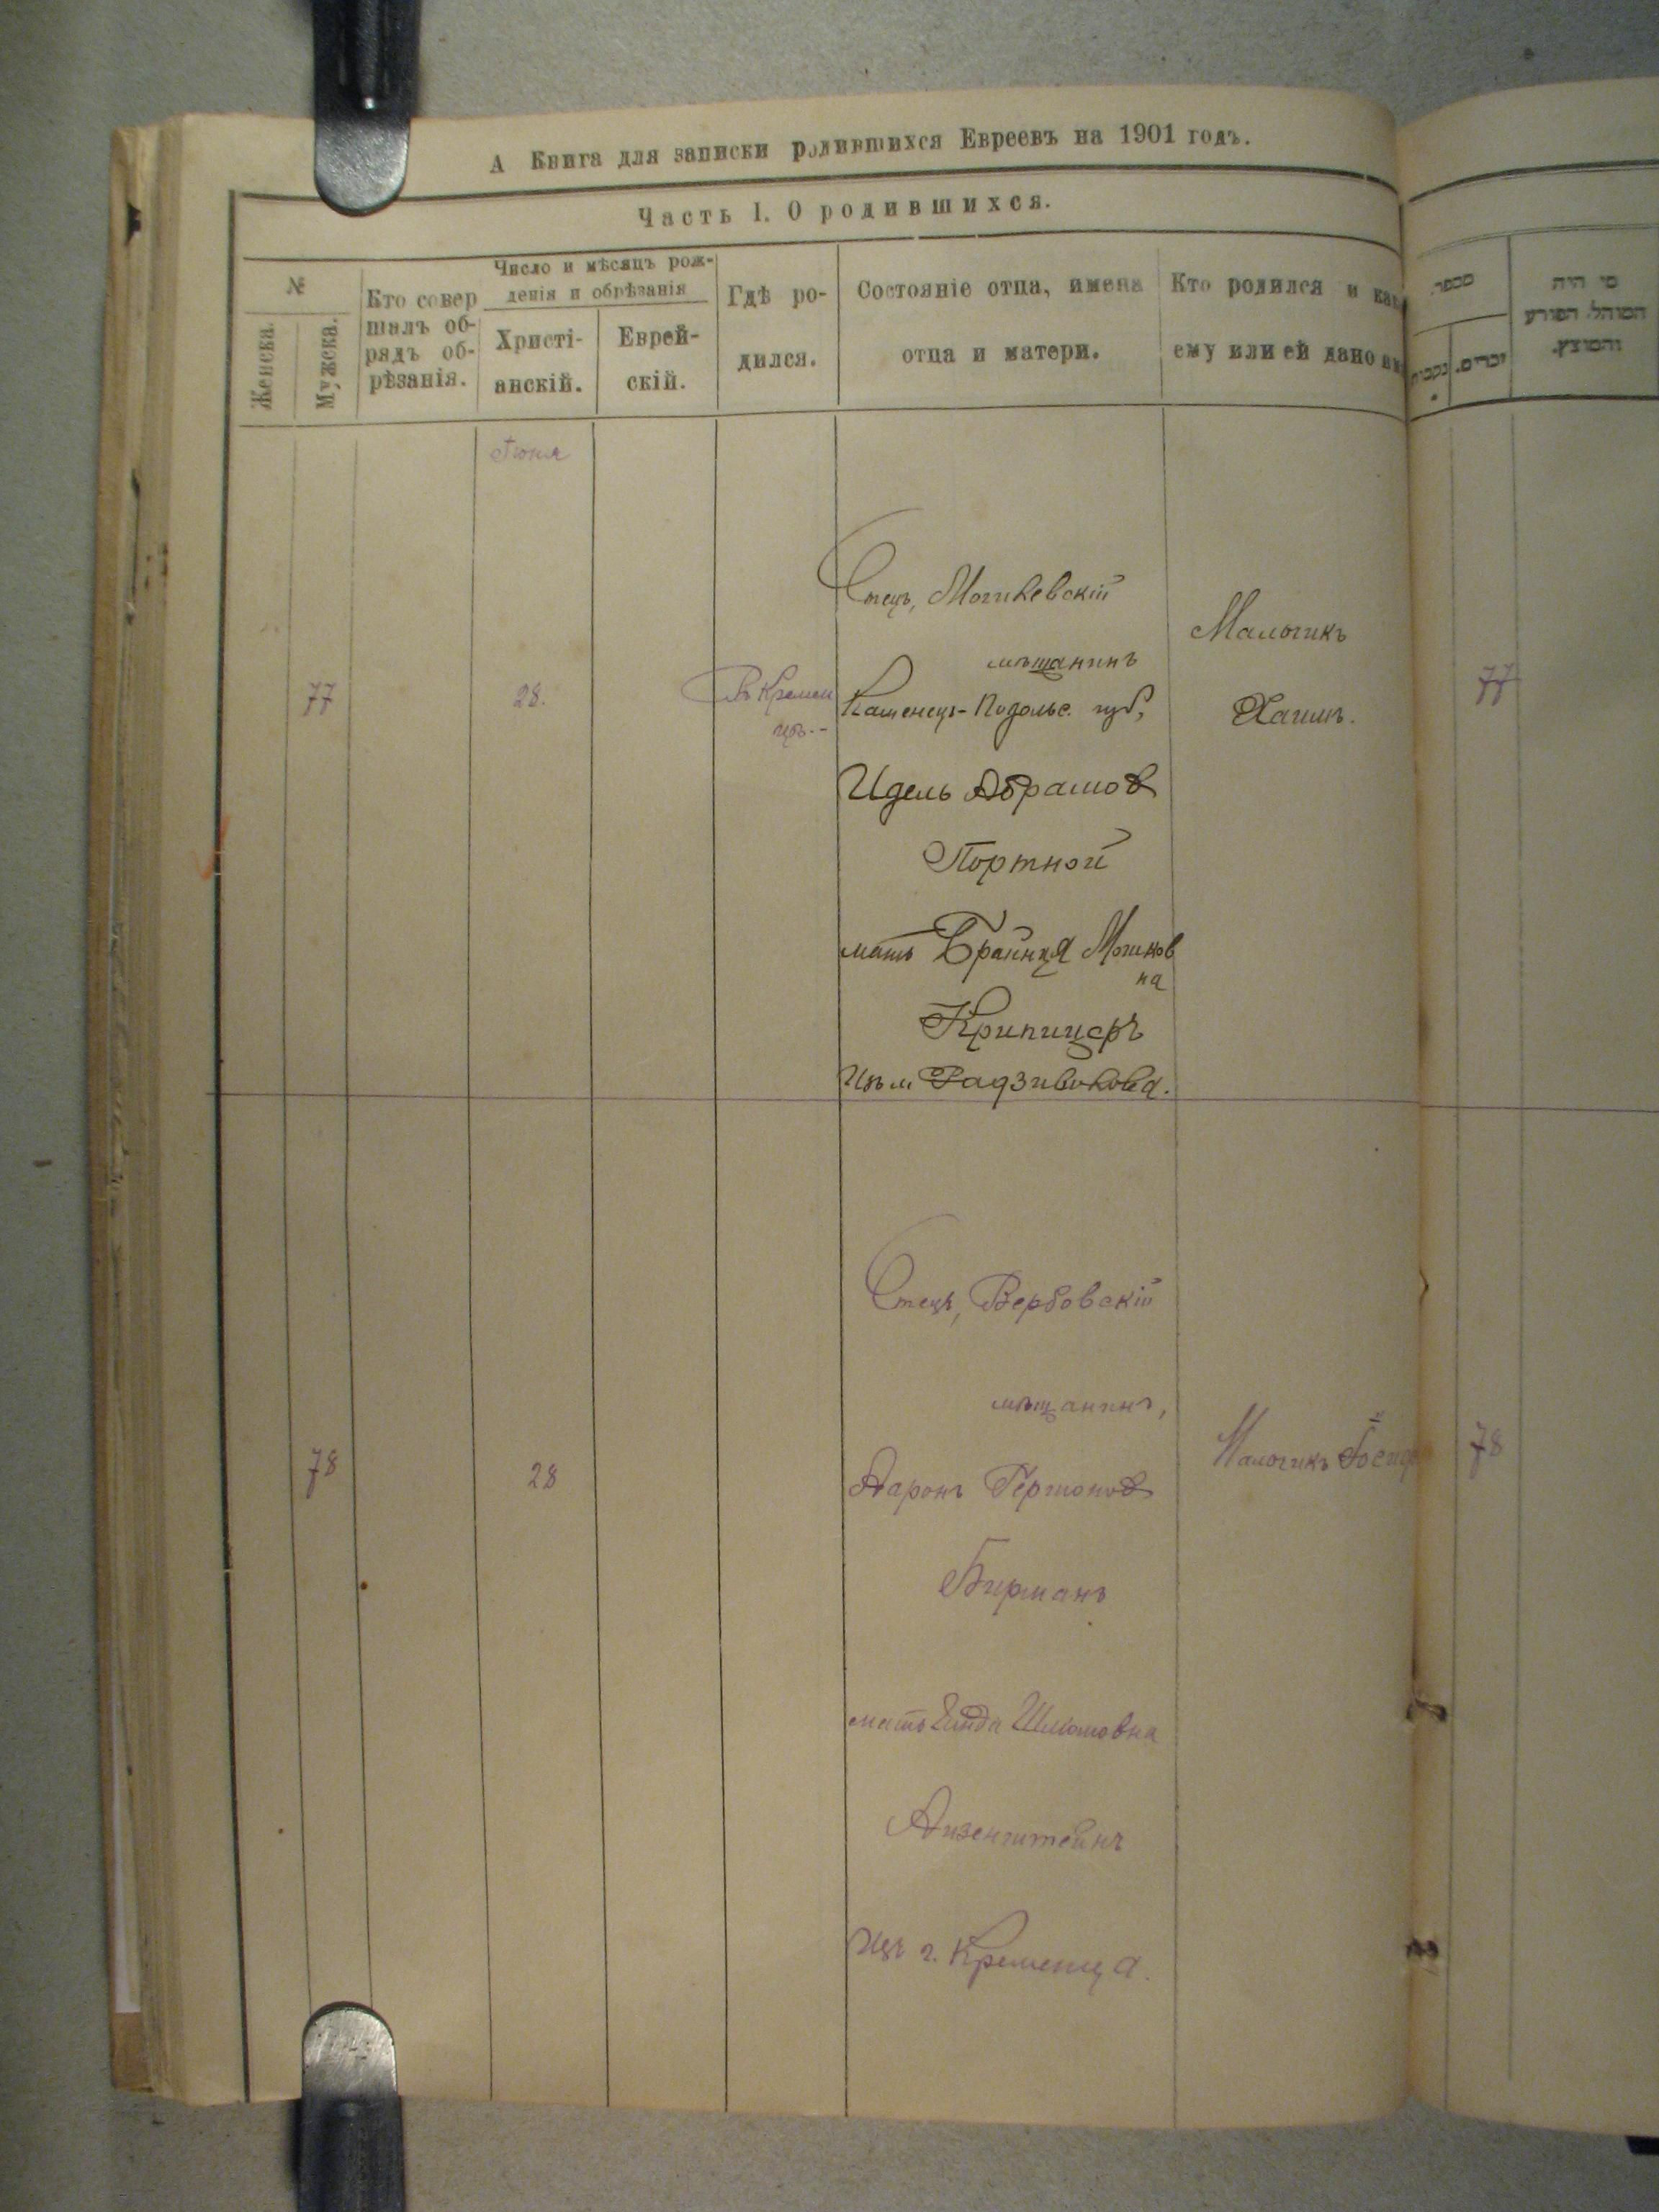 А Книга для записки родившихся Евреевъ на 1901 годъ.
Часть I. О родившихся.
№
Женска.
Мужска.
Кто совер
шалъ об-
рядъ об-
рѣзанія.
Число и мѣсяцъ рож-
денія и обрѣзанія
Христі-
анскій.
Еврей-
скій.
Гдѣ ро-
дился.
Состояніе отца, имена
отца и матери.
Кто родился и как
ему или ей дано им
מספר.
נקבות
זכרים.
מי היה
המוהל, הפורע
והמוצץ.
Іюня
77
28.
Въ Кремен
цѣ.-
Отецъ, Могилевскій
мѣщанинъ
Каменецъ-Подольс. губ,
Идель Абрамов
Портной
мать Брайндя Мошков
на
Крипицеръ
Изъ м Радзивилова.
Мальчикъ
Хаимъ.
77
78
28
Отецъ, Вербовскій
мѣщанинъ,
Ааронъ Гершонов
Бирманъ
мать Шломовна
Айзенштейнъ
Изъ г. Кременца.
Мальчикъ
78